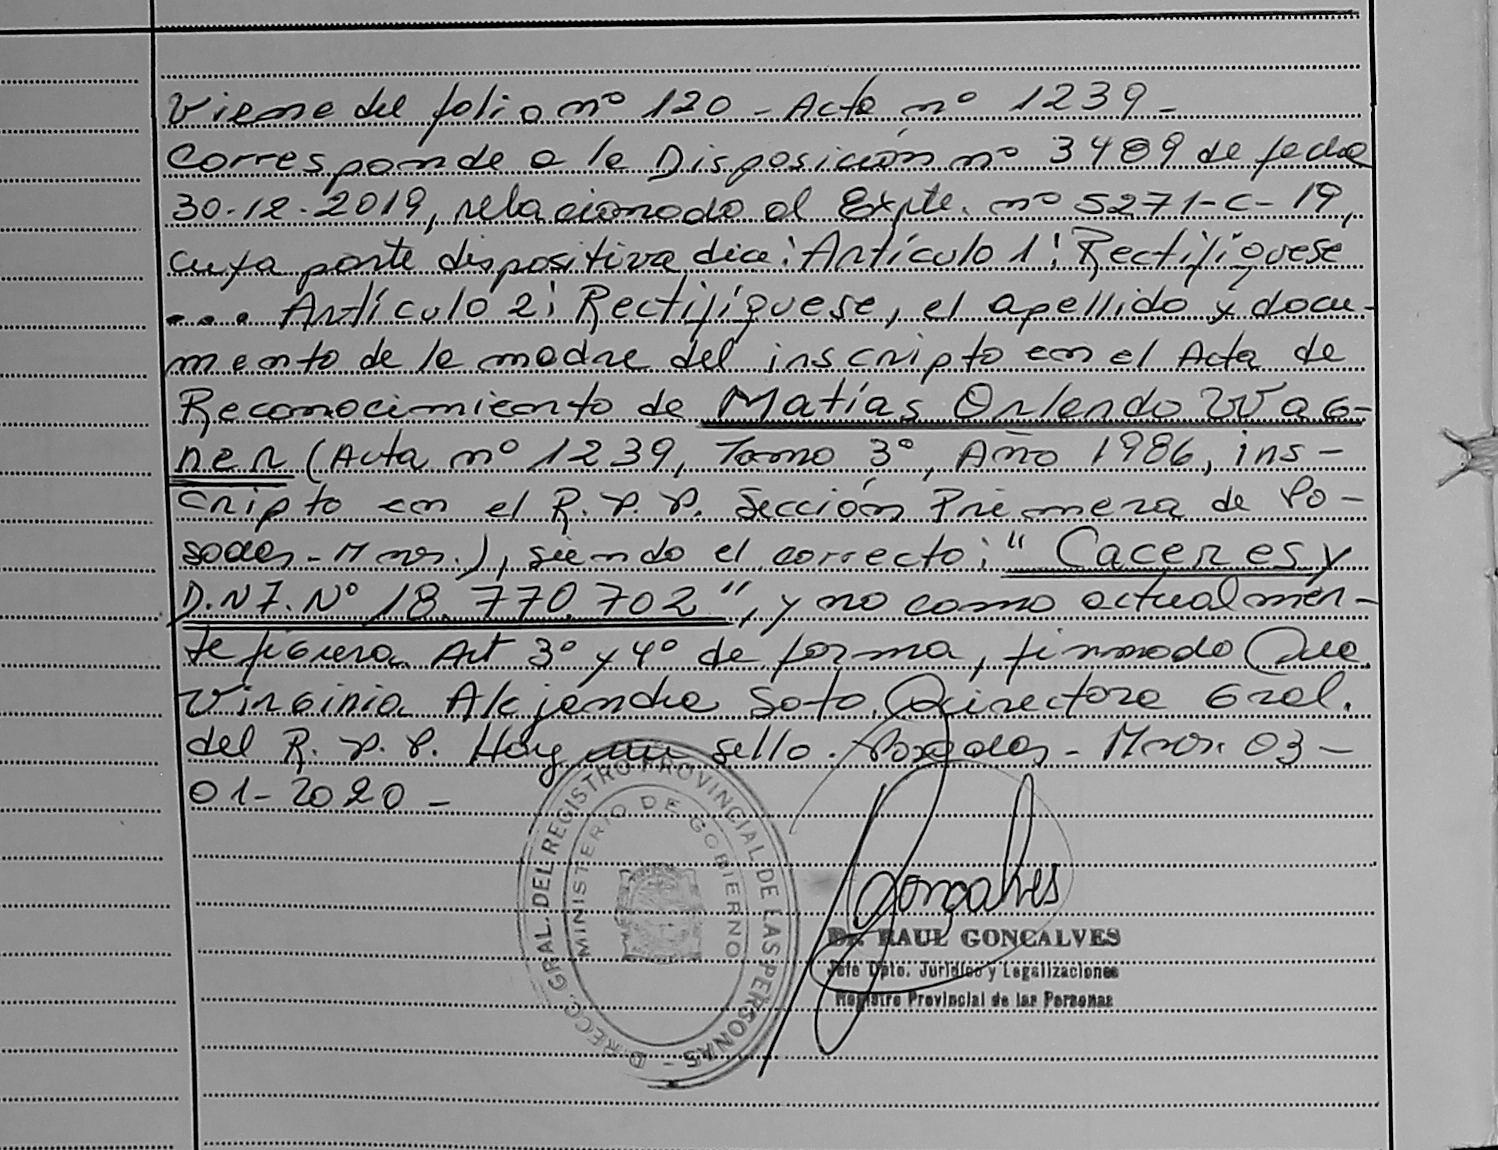 Viene del folio nº 120 - Acta nº 1239 -
Corresponde a la Disposición nº 3489 de fecha
30-12-2019, relacionado al Expte. nº 5271-C-19,
cuya parte dispositiva dice: Artículo 1: Rectifíquese
... Artículo 2: Rectifíquese, el apellido y docu-
mento de la madre del inscripto en el Acta de
Reconocimiento de Matías Orlando Wag-
ner (Acta nº 1239, Tomo 3º, Año 1986, ins-
cripto en el R. P. P. Sección Primera de Po-
sadas - Mnes.), siendo el correcto: "Caceres y
D.N.I. Nº 18.770.702", y no como actualmen-
te figura. Art 3º y 4º de forma, firmado
Virginia Alejandra Soto. Directora Gral.
del R. P. P. Hay un sello. Posadas - Mnes. 03-
01-2020 -
DIRECC. GRAL. DEL REGISTRO PROVINCIAL DE LAS PERSONAS -
MINISTERIO DE GOBIERNO
Gonçalves
Dr. RAUL GONCALVES
Jefe Dpto. Jurídico y Legalizaciones
Registro Provincial de las Personas